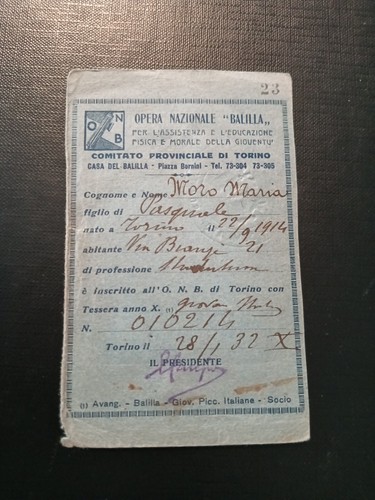 23
O N B
OPERA NAZIONALE "BALILLA"
PER L'ASSISTENZA E L'EDUCAZIONE
FISICA E MORALE DELLA GIOVENTU'
COMITATO PROVINCIALE DI TORINO
CASA DEL BALILLA - Piazza Bernini - Tel. 73-304 73-305
Cognome e Nome Moro Maria
figlio di Pasquale
nato a Torino il 22/9 1914
abitante Via 21
di professione Studentessa
è inscritto all'O. N. B. di Torino con
Tessera anno X. (1) giovane
N. 010214
Torino il 28/1 32 X
IL PRESIDENTE
(1) Avang. - Balilla - Giov. Picc. Italiane - Socio